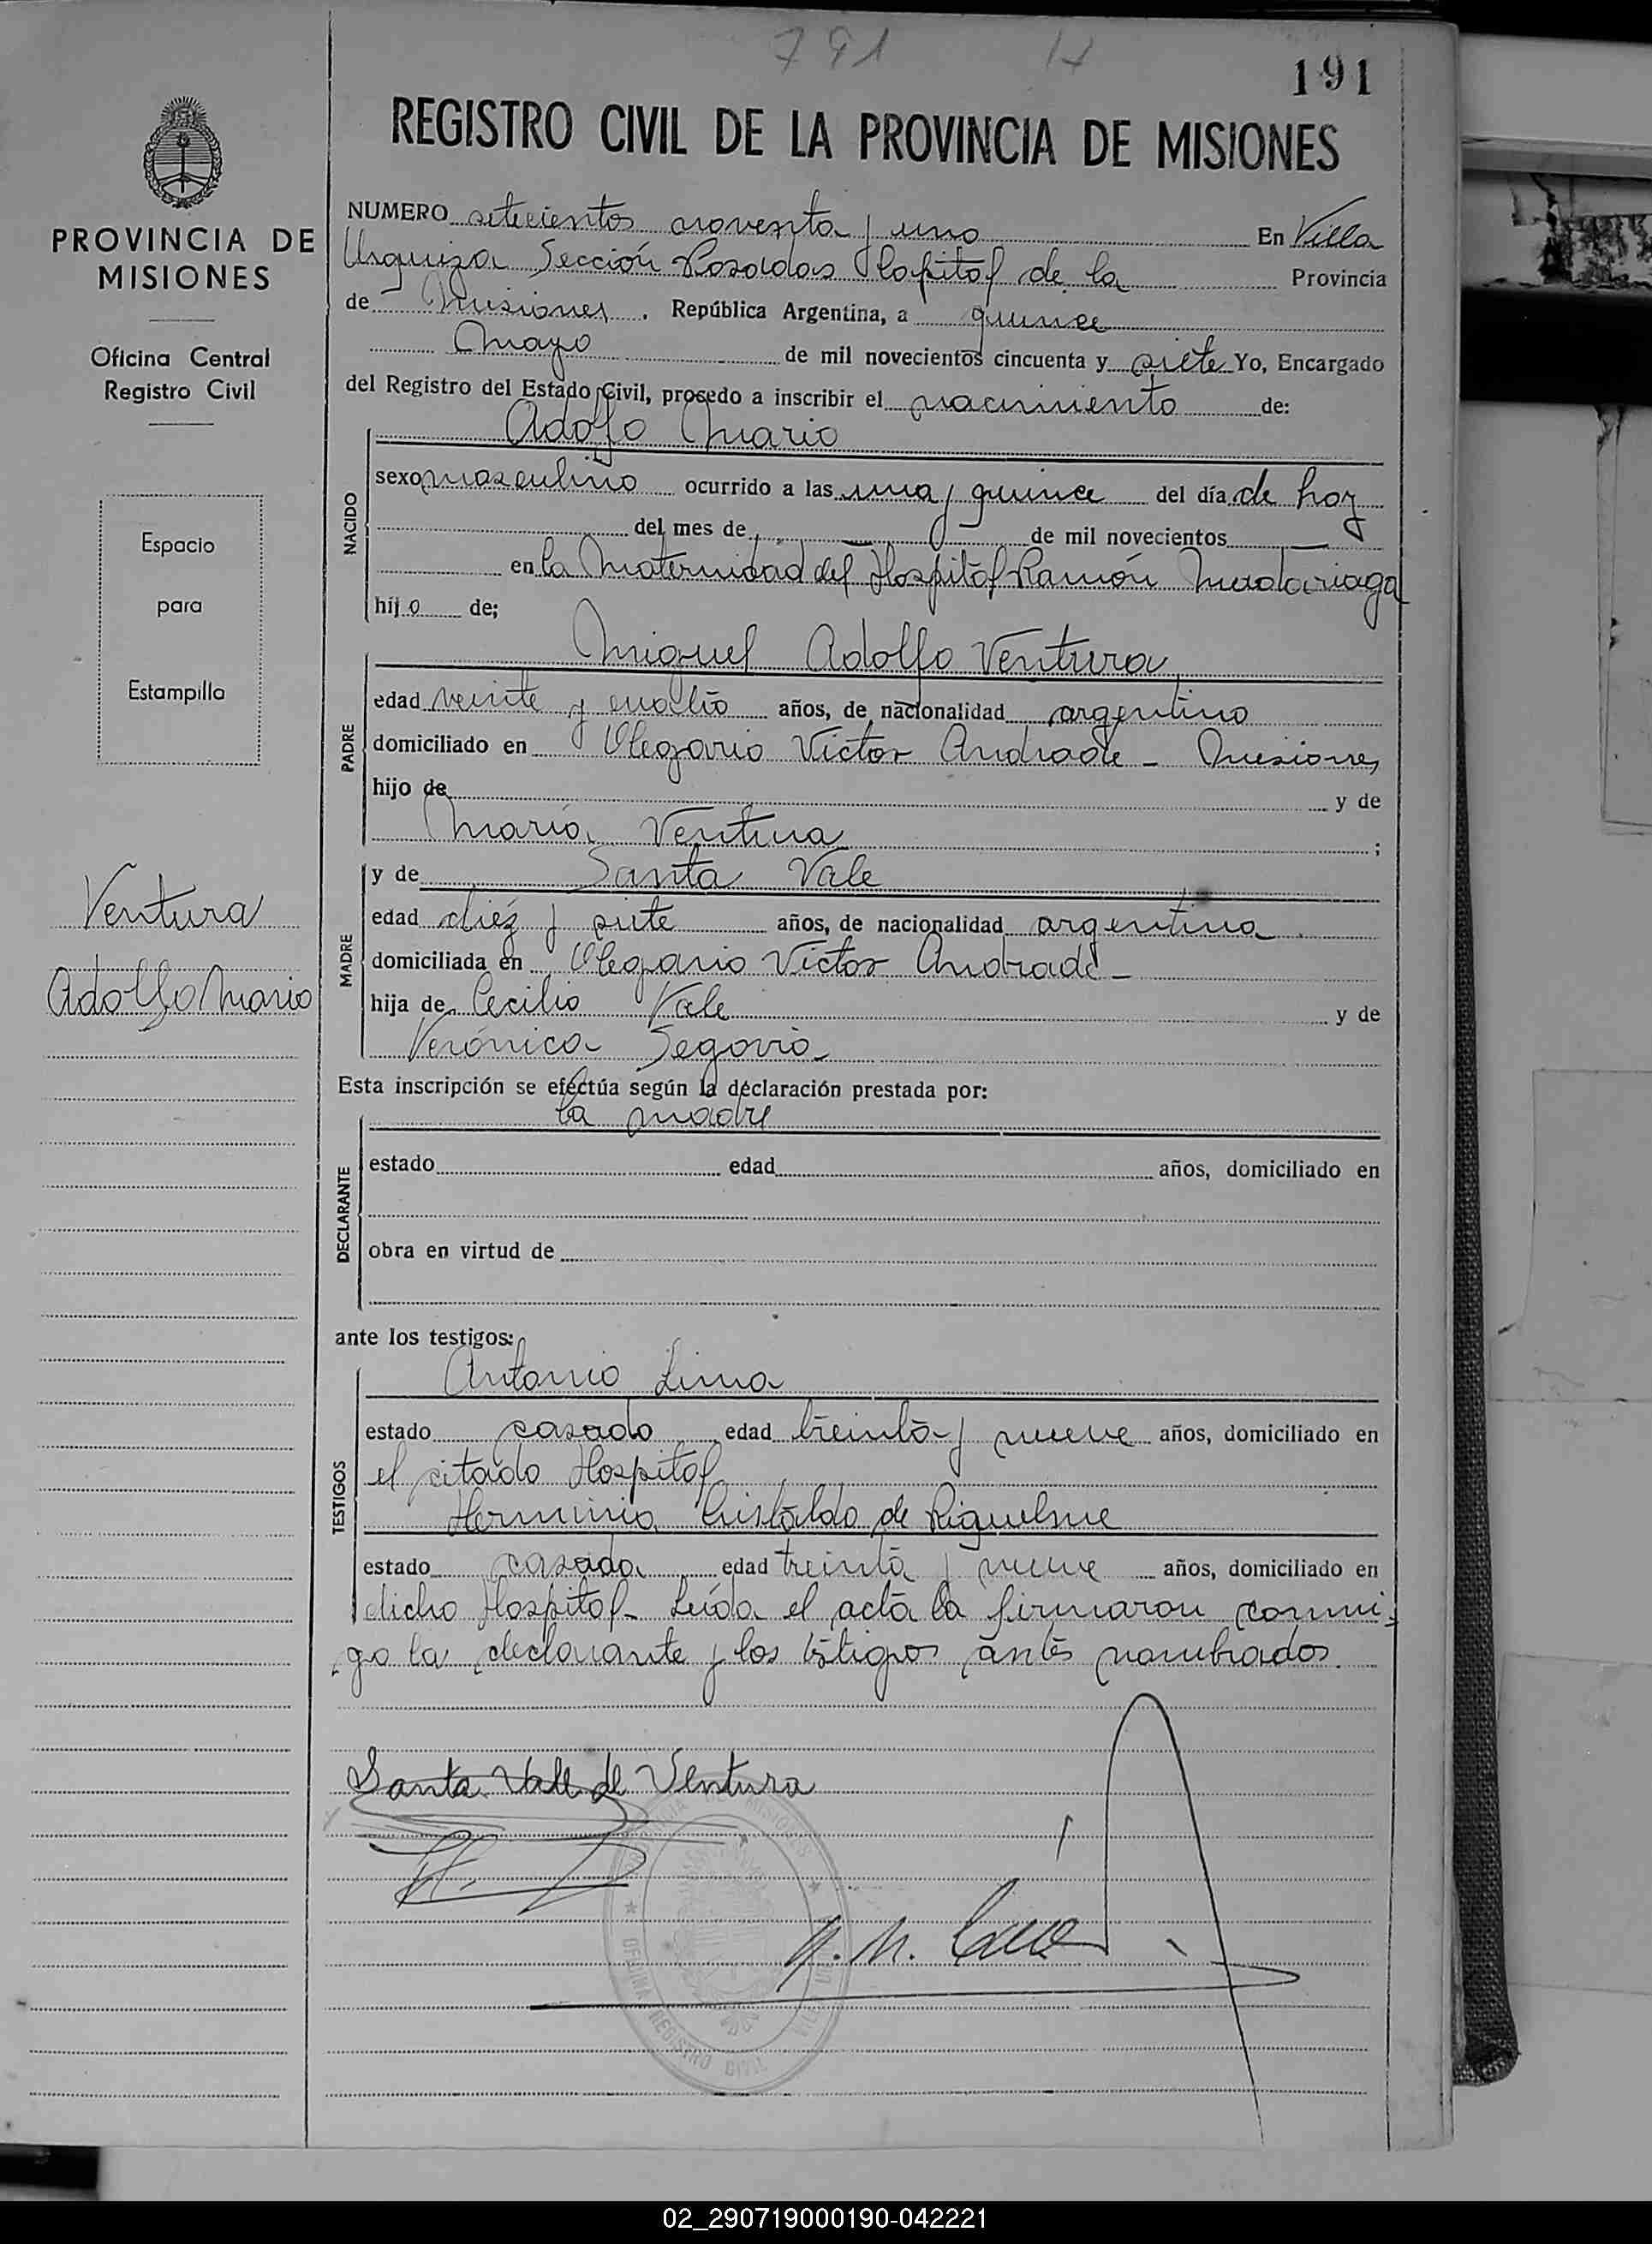 791
191
REGISTRO CIVIL DE LA PROVINCIA DE MISIONES
PROVINCIA DE
MISIONES
Oficina Central
Registro Civil
Espacio
para
Estampilla
Ventura
Adolfo Mario
NUMERO setecientos noventa y uno En Villa
Urquiza Sección Posadas Hospital de la Provincia
de Misiones. República Argentina, a quince
Mayo de mil novecientos cincuenta y siete Yo, Encargado
del Registro del Estado Civil, procedo a inscribir el nacimiento de:
Adolfo Mario
NACIDO
sexo masculino ocurrido a las una y quince del día de hoy
del mes de de mil novecientos
en la Maternidad del Hospital Ramón Madariaga
hijo de;
Miguel Adolfo Ventura
PADRE
edad veinte y cuatro años, de nacionalidad argentino
domiciliado en Olegario Victor Andrade - Misiones
hijo de y de
María Ventura ;
y de Santa Vale
MADRE
edad diéz y siete años, de nacionalidad argentina
domiciliada en Olegario Victor Andrade -
hija de Cecilio Vale y de
Verónica Segovia
Esta inscripción se efectúa según la declaración prestada por:
la madre
DECLARANTE
estado edad años, domiciliado en
obra en virtud de
ante los testigos:
Antonio Lima
TESTIGOS
estado casado edad treinta y nueve años, domiciliado en
el citado Hospital
Herminia Cristaldo de Riquelme
estado casada edad treinta y nueve años, domiciliado en
dicho Hospital - Leída el acta la firmaron conmi-
go la declarante y los testigos antes nombrados.
Santa Vale de Ventura
OFICINA REGISTRO CIVIL
02_290719000190-042221